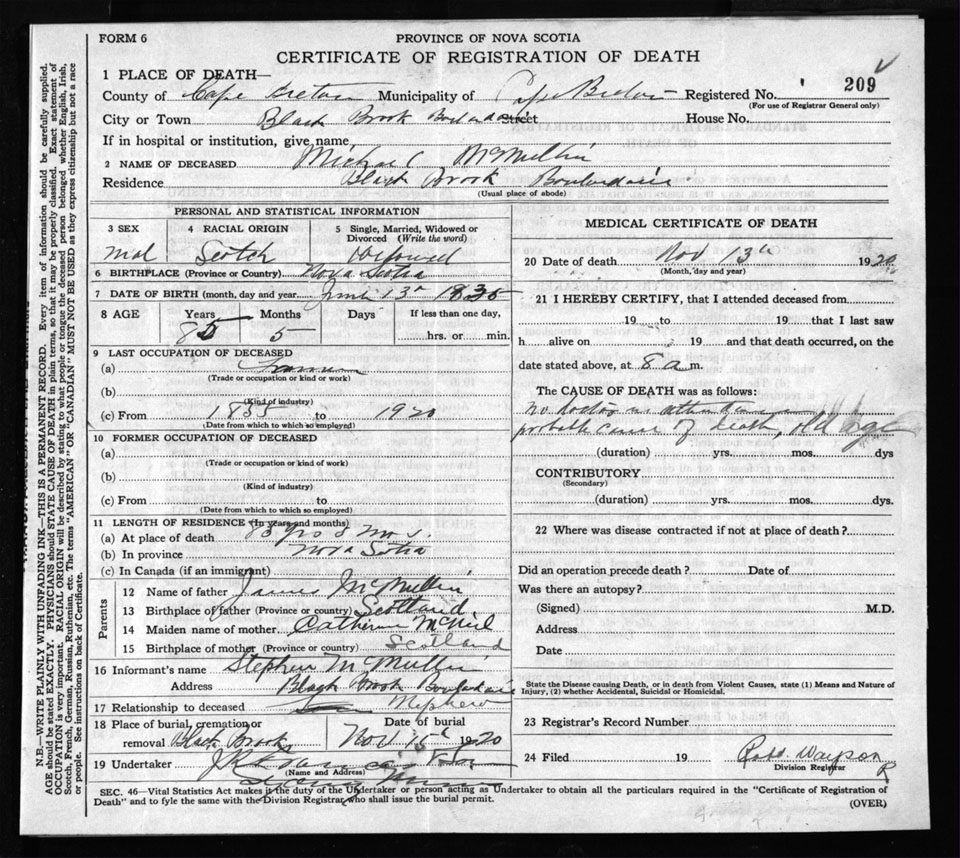 FORM 6
PROVINCE OF NOVA SCOTIA
CERTIFICATE OF REGISTRATION OF DEATH
1 PLACE OF DEATH—
County of Cape Breton Municipality of Cape Breton Registered No. 209
(For use of Registrar General only)
City or Town Black Brook Boulardarie Street House No.
If in hospital or institution, give name
2 NAME OF DECEASED Michael McMullin
Residence Black Brook Boulardarie
(Usual place of abode)
PERSONAL AND STATISTICAL INFORMATION
3 SEX 4 RACIAL ORIGIN 5 Single, Married, Widowed or Divorced (Write the word)
Mal Scotch
6 BIRTHPLACE (Province or Country) Nova Scotia
7 DATE OF BIRTH (month, day and year 13th 1835
8 AGE Years Months Days If less than one day,
85 5 hrs. or min.
9 LAST OCCUPATION OF DECEASED
(a)
(Trade or occupation or kind or work)
(b)
(Kind of industry)
(c) From 1855 to 1920
(Date from which to which so employed)
10 FORMER OCCUPATION OF DECEASED
(a)
(Trade or occupation or kind of work)
(b)
(Kind of industry)
(c) From to
(Date from which to which so employed)
11 LENGTH OF RESIDENCE (In years and months)
(a) At place of death 85 yrs 5 ms.
(b) In province Nova Scotia
(c) In Canada (if an immigrant)
Parents
12 Name of father James McMullin
13 Birthplace of father (Province or country) Scotland
14 Maiden name of mother Catherine McNeil
15 Birthplace of mother (Province or country) Scotland
16 Informant's name Stephen McMullin
Address Black Brook Boulardarie
17 Relationship to deceased Nephew
18 Place of burial, cremation or removal Black Brook Date of burial Nov 15th 1920
19 Undertaker
(Name and Address)
MEDICAL CERTIFICATE OF DEATH
20 Date of death Nov 13th 1920
(Month, day and year)
21 I HEREBY CERTIFY, that I attended deceased from
19 to 19 that I last saw
h alive on 19 and that death occurred, on the
date stated above, at 8 a m.
The CAUSE OF DEATH was as follows:
No doctor in attendance
probable cause of death, old age
(duration) yrs. mos. dys
CONTRIBUTORY
(Secondary)
(duration) yrs. mos. dys.
22 Where was disease contracted if not at place of death?
Did an operation precede death? Date of
Was there an autopsy?
(Signed) M.D.
Address
Date
State the Disease causing Death, or in death from Violent Causes, state (1) Means and Nature of Injury, (2) whether Accidental, Suicidal or Homicidal.
23 Registrar's Record Number
24 Filed 19
Division Registrar
SEC. 46—Vital Statistics Act makes it the duty of the Undertaker or person acting as Undertaker to obtain all the particulars required in the "Certificate of Registration of
Death" and to fyle the same with the Division Registrar who shall issue the burial permit. (OVER)
N.B.—WRITE PLAINLY WITH UNFADING INK—THIS IS A PERMANENT RECORD. Every item of information should be carefully supplied.
AGE should be stated EXACTLY. PHYSICIANS should STATE CAUSE OF DEATH in plain terms, so that it may be properly classified. Exact statement of
OCCUPATION is very important. RACIAL ORIGIN will be described by stating to what people or tongue the deceased person belonged whether English, Irish,
Scotch, French, German, Russian, Ruthenian, etc. The terms "AMERICAN" OR "CANADIAN" MUST NOT BE USED as they express citizenship but not a race
or people. See instructions on back of Certificate.